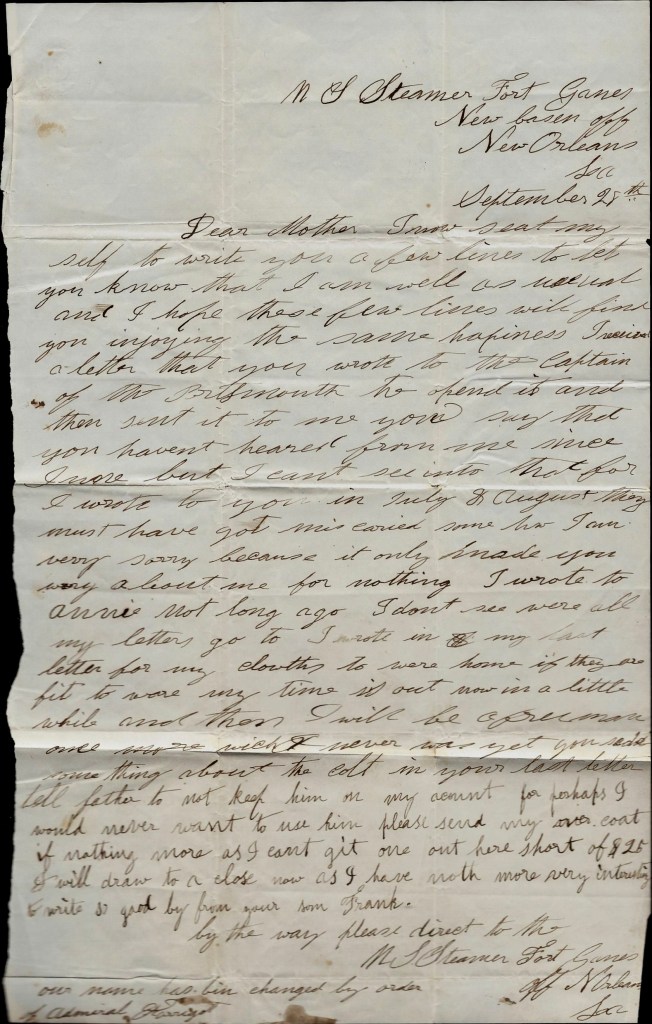 U S Steamer Fort Ganes
New basen off
New Orleans
La
September 28th
Dear Mother I now seat my
self to write you a few lines to let
you know that I am well as usual
and I hope these few lines will find
you injoying the same hapiness I
a letter that you wrote to the Captain
of the Portsmouth he opend it and
then sent it to me you say that
you havent heared from me since
but I cant see into that for
I wrote to you in July & August they
must have got miscaried some how I am
very sorry because it only made you
about me for nothing I wrote to
annie not long ago I dont see were all
my letters go to I wrote in my last
letter for my clowths to were home if they are
fit to ware my time is out now in a little
while and then I will be a freeman
once more I never was yet you said
some thing about the colt in your last letter
tell father to not keep him on my acount for perhaps I
would never want to use him please send my over coat
if nothing more as I cant git one out here short of $25
I will draw to a close now as I have noth more very interesting
to write so good by from your som Frank.
by the way please direct to the
U S Steamer Fort Ganes
off N Orleans
La
our name has bin changed by order
of Admeral Farrigot